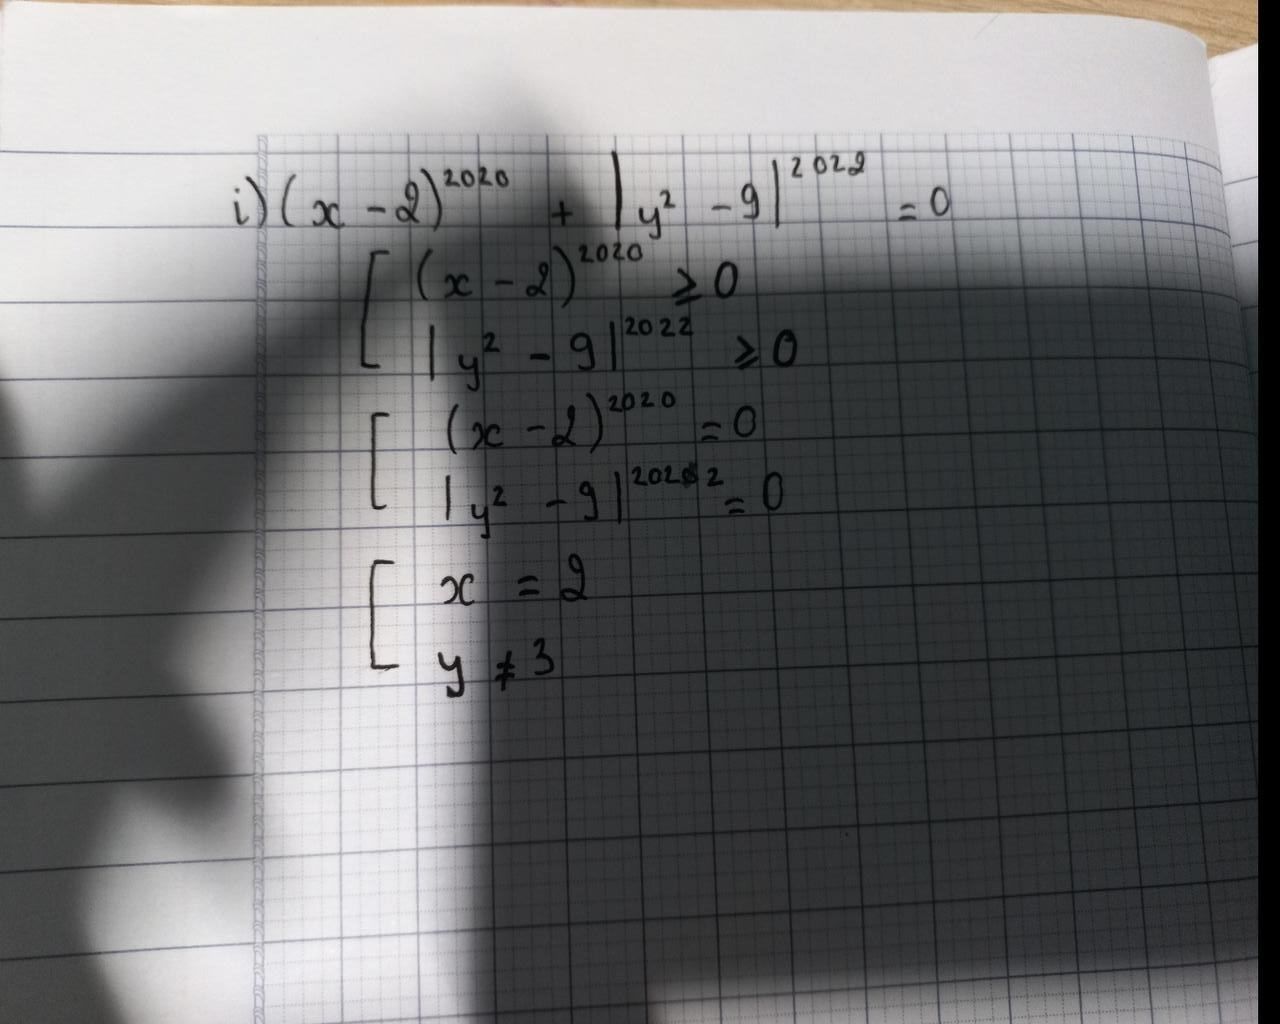 i) (x - 2)^2020 + |y² - 9|^2022 = 0
[ (x - 2)^2020 ⩾ 0
|y² - 9|^2022 ⩾ 0
[ (x - 2)^2020 = 0
|y² - 9|^2022 = 0
[ x = 2
y ≠ 3